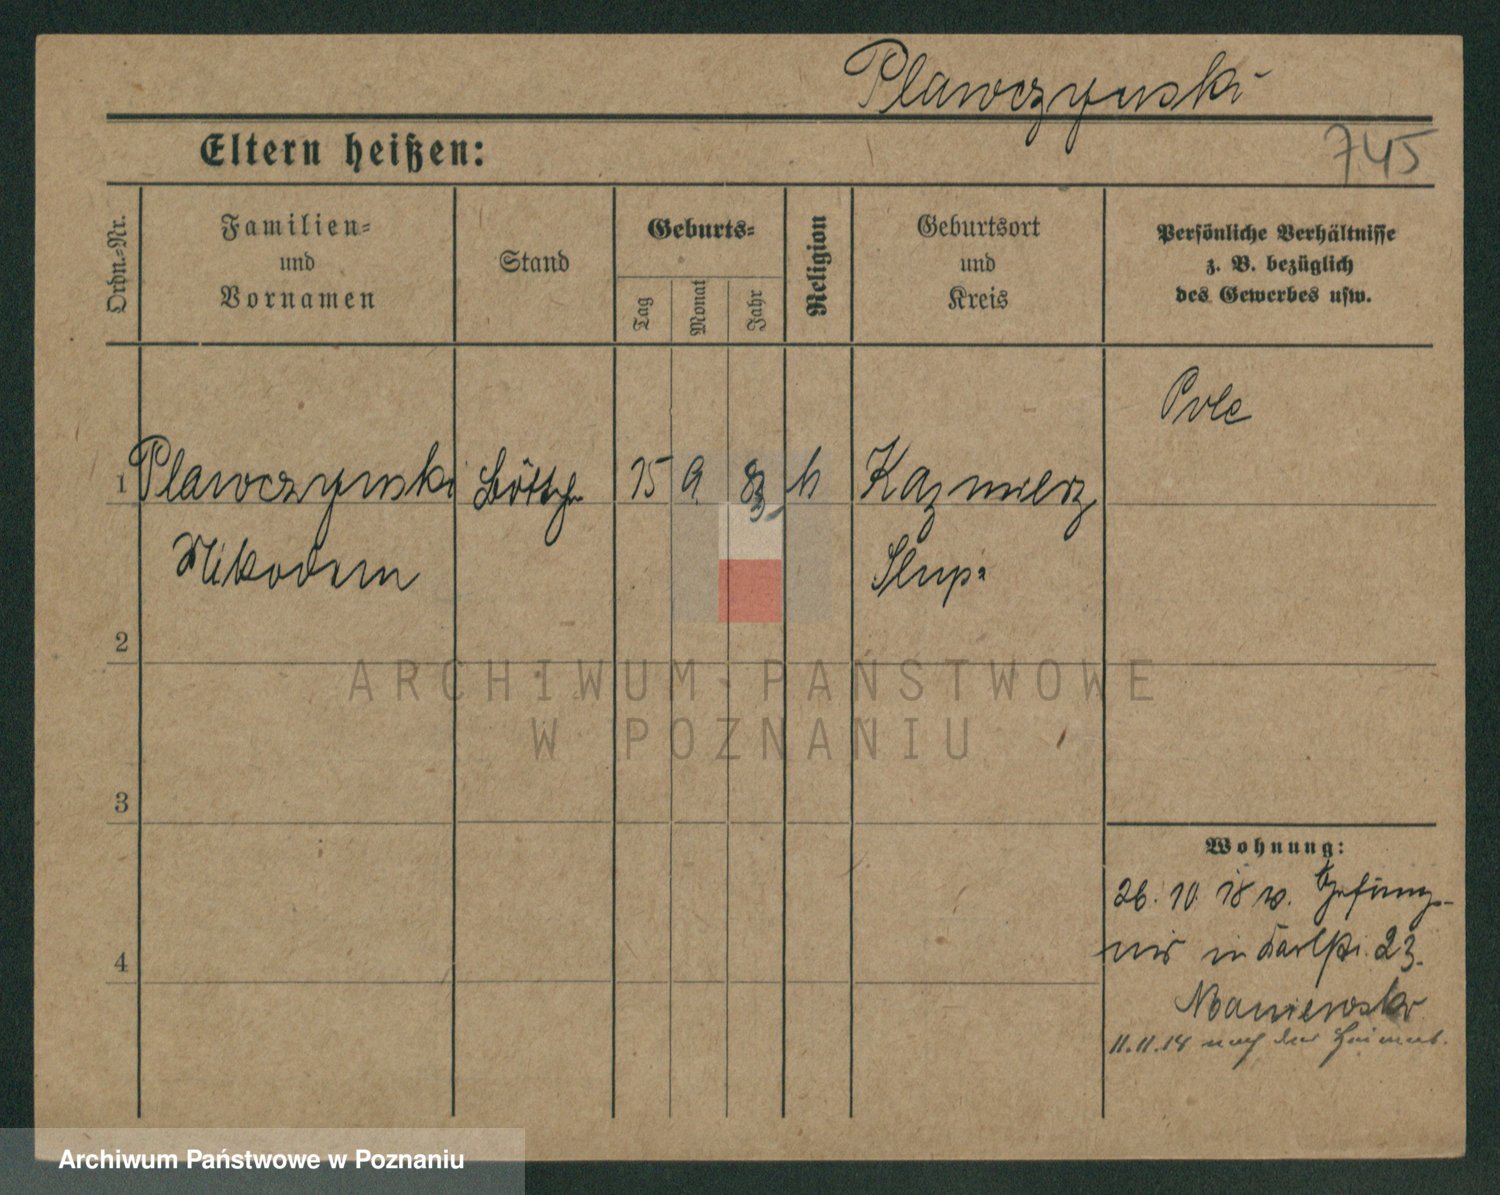 Plawczynski
745
Eltern heißen:
Ordn.-Nr.
Familien-
und
Vornamen
Stand
Geburts-
Tag
Monat
Jahr
Religion
Geburtsort
und
Kreis
Persönliche Verhältnisse
z. B. bezüglich
des Gewerbes usw.
Pole
1 Plawczynski Böttcher 15 9 83 k Kazmierz
Nikodem Slup.
2
3
4
Wohnung:
26. 10. 18 v. Gefäng-
nis in Karlstr. 23.
11.11.18 nach der Heimat.
ARCHIWUM PAŃSTWOWE
W POZNANIU
Archiwum Państwowe w Poznaniu